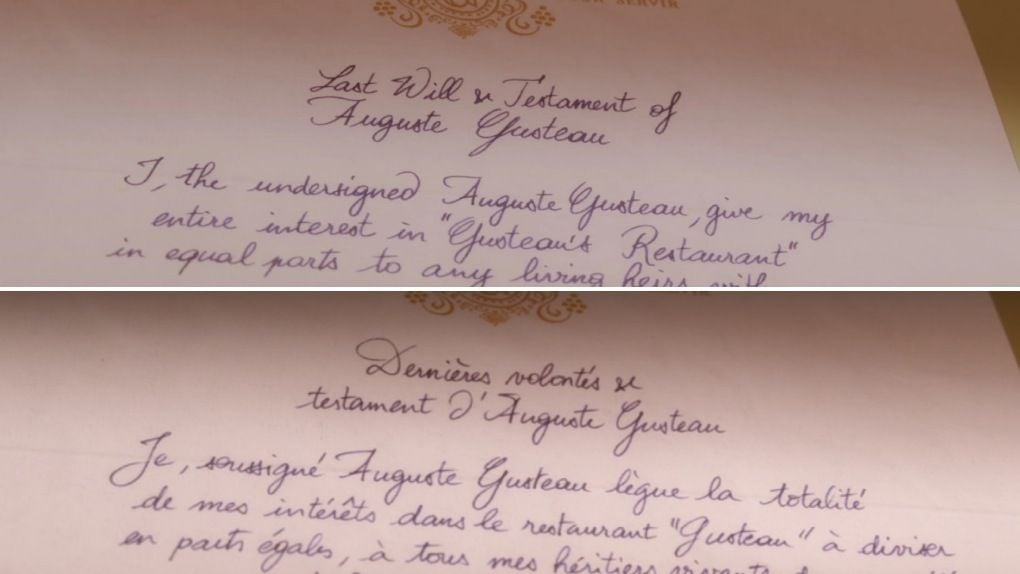 SERVIR
Last Will & Testament of
Auguste Gusteau
I, the undersigned Auguste Gusteau, give my
entire interest in "Gusteau's Restaurant"
in equal parts to any living heirs with
Dernières volontés &
testament d'Auguste Gusteau
Je, soussigné Auguste Gusteau lègue la totalité
de mes intérêts dans le restaurant "Gusteau" à diviser
en parts égales, à tous mes héritiers vivants